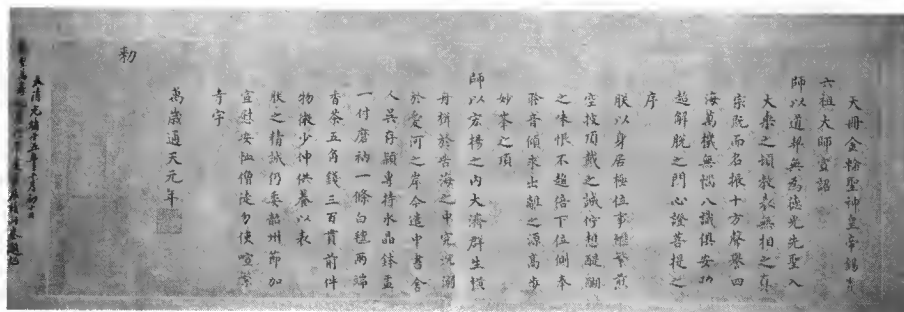 天冊金輪聖神皇帝錫
六祖大師宣詔
師以道契無為德光先聖入
大乘之頓教表無相之真
宗既而名振十方聲譽四
海萬機無惱八識俱安功
超解脫之門心證菩提之
序
朕以身居極位事繼繁煎
空披頂戴之誠佇想醍醐
之味恨不趨倍下位側奉
發音傾求出離之源高步
妙峯之頂
師以宏揚之內大濟群生
舟楫於苦海之中究沉溺
於愛河之岸今遣中書舍
人吳存穎專持水晶鉢盂
一付磨衲一條白氎兩端
香茶五角錢三百貫前件
物微少伸供養以表
朕之精誠仍委韶州節加
宣慰安恤僧徒勿使喧繁
寺宇
萬歲通天元年
勅
大清光緒十五年十月初